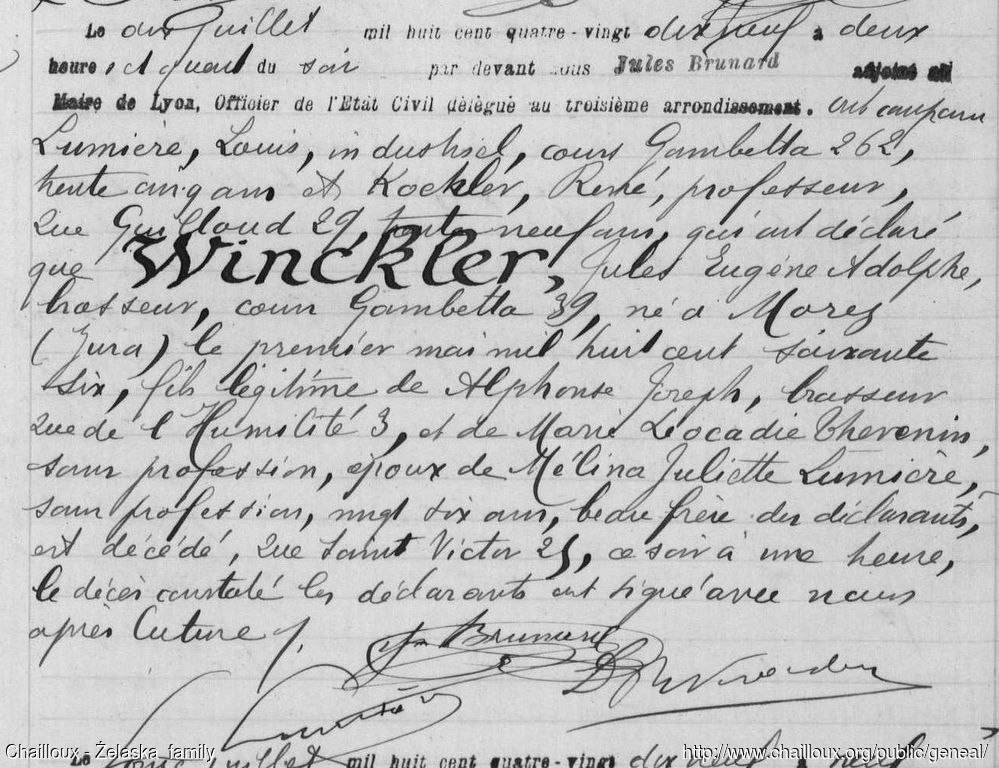 Le dix Juillet mil huit cent quatre-vingt dix neuf à deux
heures et quart du soir par devant nous Jules Brunard adjoint au
Maire de Lyon, Officier de l'Etat Civil délégué au troisième arrondissement. ont comparu
Lumière, Louis, industriel, cours Gambetta 262,
trente cinq ans et Kockler, René, professeur,
rue Guilloud 29, trente neuf ans, qui ont déclaré
que Winckler, Jules Eugène Adolphe,
brasseur, cours Gambetta 39, né à Morez
(Jura) le premier mai mil huit cent soixante
six, fils légitime de Alphonse Joseph, brasseur
rue de l'Humilité 3, et de Marie Léocadie Thevenin,
sans profession, époux de Mélina Juliette Lumière,
sans profession, vingt six ans, beau frère des déclarants,
est décédé, rue Saint Victor 25, ce soir à une heure,
le décès constaté les déclarants ont signé avec nous
après lecture /.
Brunard
Lumière
Chailloux - Żelaska_family
http://www.chailloux.org/public/geneal/
Le onze Juillet mil huit cent quatre-vingt dix neuf à